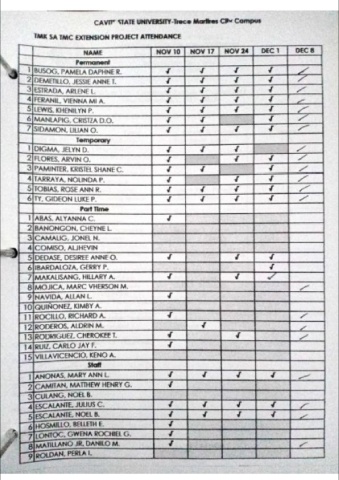 CAVITE STATE UNIVERSITY-Trece Martires City Campus
TMK SA TMC EXTENSION PROJECT ATTENDANCE
NAME NOV 10 NOV 17 NOV 24 DEC 1 DEC 8
Permanent
1 BUSOG, PAMELA DAPHNE R. ✓ ✓ ✓ ✓ ✓
2 DEMETILLO, JESSE ANNE T. ✓ ✓ ✓ ✓ ✓
3 ESTRADA, ARLENE L. ✓ ✓ ✓ ✓ ✓
4 FERANIL, VIENNA MI A. ✓ ✓ ✓ ✓ ✓
5 LEWIS, KHENILYN P. ✓ ✓ ✓ ✓ ✓
6 MANLAPIG, CRISTZA D.O. ✓ ✓ ✓ ✓
7 SIDAMON, LILIAN O. ✓ ✓ ✓ ✓ ✓
Temporary
1 DIGMA, JELYN D. ✓ ✓ ✓ ✓
2 FLORES, ARVIN O. ✓ ✓ ✓ ✓
3 PAMINTER, KRISTEL SHANE C. ✓ ✓ ✓ ✓
4 TARRAYA, NOLINDA P. ✓ ✓ ✓ ✓
5 TOBIAS, ROSE ANN R. ✓ ✓ ✓ ✓ ✓
6 TY, GIDEON LUKE P. ✓ ✓ ✓ ✓ ✓
Part Time
1 ABAS, ALYANNA C. ✓
2 BANONGON, CHEYNE L.
3 CAMALIG, JONEL N.
4 COMISO, ALJHEVIN
5 DEDASE, DESIREE ANNE O. ✓ ✓ ✓
6 IBARDALOZA, GERRY P. ✓
7 MAKALISANG, HILLARY A. ✓ ✓ ✓
8 MOJICA, MARC VHERSON M. ✓
9 NAVIDA, ALLAN L. ✓
10 QUIÑONEZ, KIMBY A.
11 ROCILLO, RICHARD A. ✓ ✓
12 RODEROS, ALDRIN M. ✓
13 RODRIGUEZ, CHEROKEE T. ✓ ✓ ✓
14 RUIZ, CARLO JAY F. ✓
15 VILLAVICENCIO, KENO A.
Staff
1 ANONAS, MARY ANN L. ✓ ✓ ✓ ✓ ✓
2 CAMITAN, MATTHEW HENRY G. ✓
3 CULANG, NOEL B.
4 ESCALANTE, JULIUS C. ✓ ✓ ✓ ✓ ✓
5 ESCALANTE, NOEL B. ✓ ✓ ✓ ✓ ✓
6 HOSMILLO, BELLETH E. ✓
7 LONTOC, GWENA ROCHIEL G. ✓
8 MATILLANO JR, DANILO M. ✓ ✓
9 ROLDAN, PERLA I.